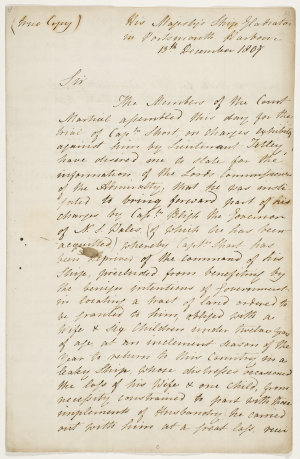 (True Copy)
His Majesty's Ship Gladiator
in Portsmouth Harbour
13th December 1807
Sir
The Members of the Court
Martial assembled this day for the
trial of Captn Short on charges exhibited
against him by Lieutenant Tetley,
have desired me to state for the
information of the Lords Commissioners
of the Admiralty, that he was insti
gated to bring forward part of his
charges by Captn Bligh the Governor
of N. S. Wales, (of which he has been
acquitted) whereby Captn Short has
been deprived of the command of his
Ship, precluded from benefiting by
the benign intentions of Government
in locating a tract of land ordered to
be granted to him, obliged with a
Wife & Six Children under twelve years
of age at an inclement season of the
Year to return to this Country, in a
leaky Ship, whose distresses occasioned
the loss of his Wife & one Child, from
necessity constrained to part with those
implements of Husbandry he carried
out with him at a great loss,